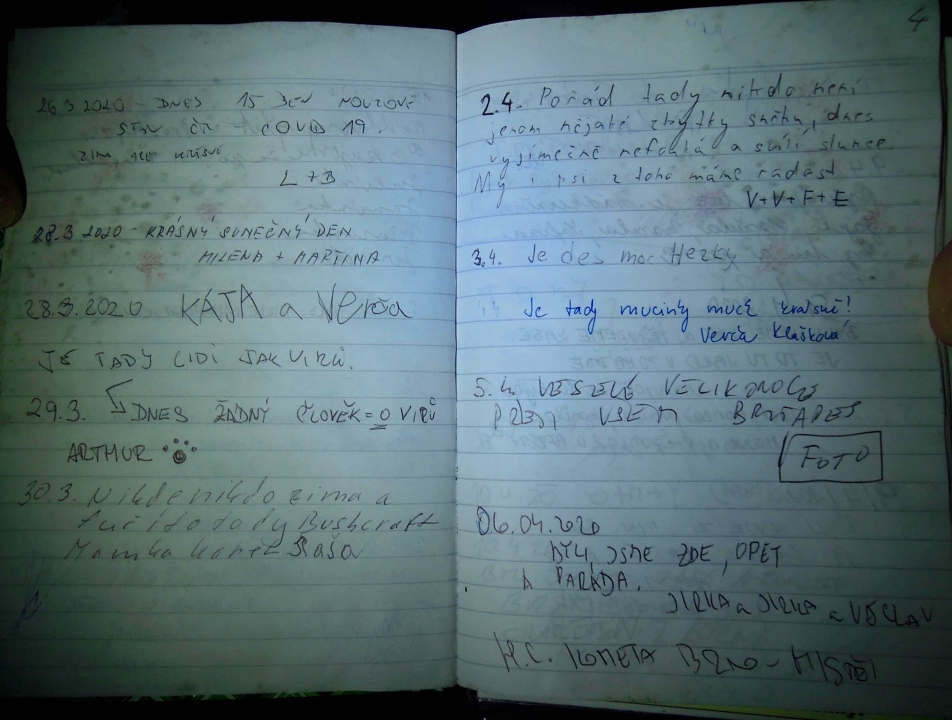 26.3 2020 - DNES 15 DEN NOUZOVÉ
STAV ČR - COVID 19.
ZIMA, ALE KRÁSNÝ
L + B
28.3 2020 - KRÁSNÝ SUNEČNÝ DEN
MILENA + MARTINA
28.3.2020 KÁJA a Verča
JE TADY LIDÍ JAK VIRŮ.
29.3. DNES ŽÁDNÝ ČLOVĚK = O VIRŮ
ARTHUR
30.3. Nikde nikdo zima a
fučí to tady Bushcraft
Mamka Saša
4
2.4. Pořád tady nikdo není
jenom nějaké zbytky sněhu, dnes
vyjímečně nefouká a svítí slunce.
My i psi z toho máme radost
V+V+F+E
3.4. Je des moc Hezky
4.4 Je tady mucinky mucě krásně!
Verča Klášková
5.4. VESELÉ VELIKONOCE
PŘEJI VŠEM
FOTO
06.04.2020
BYLI JSME ZDE, OPĚT
A PARÁDA.
JIRKA a JIRKA a VÁCLAV
H.C. KOMETA BRNO - MISTŘI